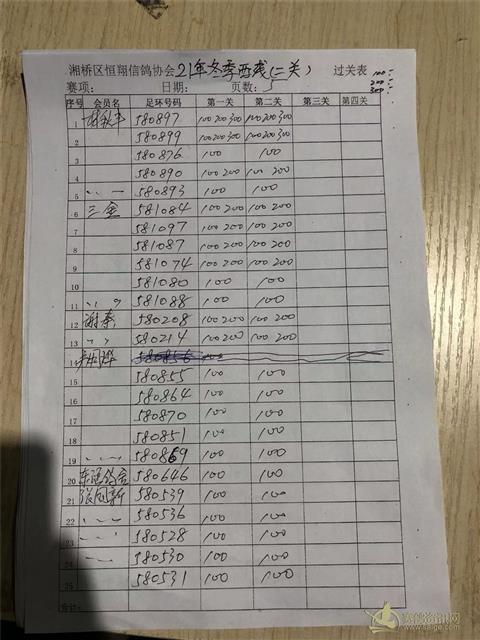 湘桥区恒翔信鸽协会21年冬季西线(二关) 过关表 100:
200:
300:
赛项: 日期: 页数: 5
序号 会员名 足环号码 第一关 第二关 第三关 第四关
1 580897 100 200 300 100 200 300
2 580899 100 200 300 100 200 300
3 580876 100 100
4 580890 100 200 100 200
5 580893 100 100
6 三金 581084 100 200 100 200
7 581097 100 200 100 200
8 581087 100 200 100 200
9 581074 100 200 100 200
10 581080 100 100
11 581088 100 100
12 谢泰 580208 100 200 100 200
13 580214 100 200 100 200
14 580856 100
15 580855 100 100
16 580864 100 100
17 580870 100 100
18 580851 100 100
19 580869 100 100
20 580646 100 100
21 580539 100 100
22 580536 100 100
23 580528 100 100
24 580530 100 100
25 580531 100 100
合计: